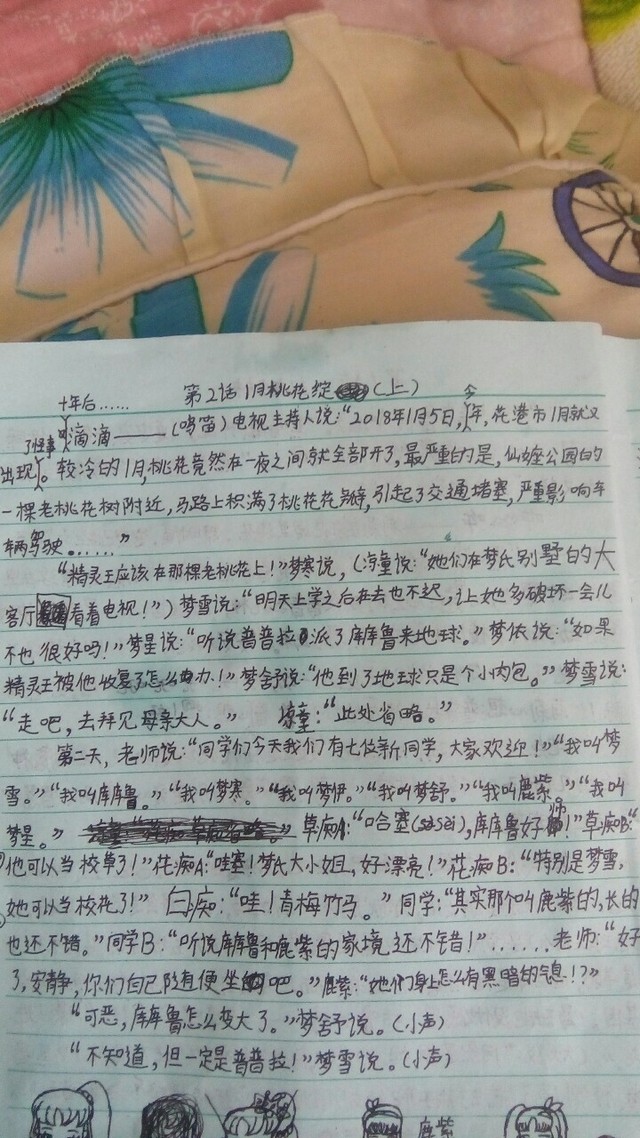 第2话 1月桃花绽(上)
十年后……
滴滴——(鸣笛)电视主持人说:“2018年1月5日,今年,花港市1月就又
出现了怪事。较冷的1月,桃花竟然在一夜之间就全部开了,最严重的是,仙蝗公园的
一棵老桃花树附近,马路上积满了桃花花瓣,引起了交通堵塞,严重影响车
辆驾驶……”
“精灵王应该在那棵老桃花上!”梦寒说,(海童说:“她们在梦氏别墅的大
客厅看着电视!”)梦雪说:“明天上学之后在去也不迟,让她多破坏一会儿
不也很好吗!”梦星说:“听说普普拉派了库库鲁来地球。”梦依说:“如果
精灵王被他收复了怎么办!”梦舒说:“他到了地球只是个小肉包。”梦雪说:
“走吧,去拜见母亲大人。” 海童:“此处省略。”
第二天,老师说:“同学们今天我们有七位新同学,大家欢迎!”“我叫梦
雪。”“我叫库库鲁。”“我叫梦寒。”“我叫梦伊。”“我叫梦舒。”“我叫鹿紫。”“我叫
梦星。” 草痴A:“哈塞(sāsèi),库库鲁好帅!”草痴B:“
他可以当校草了!”花痴A:“哇塞!梦氏大小姐,好漂亮!”花痴B:“特别是梦雪,
她可以当校花了!” 白痴:“哇!青梅竹马。”同学:“其实那个叫鹿紫的,长的
也还不错。”同学B:“听说库库鲁和鹿紫的家境还不错!”……老师:“好
了,安静,你们自己随便坐吧。”鹿紫:“她们身上怎么有黑暗的气息!?”
“可恶,库库鲁怎么变大了。”梦舒说。(小声)
“不知道,但一定是普普拉!”梦雪说。(小声)
鹿紫